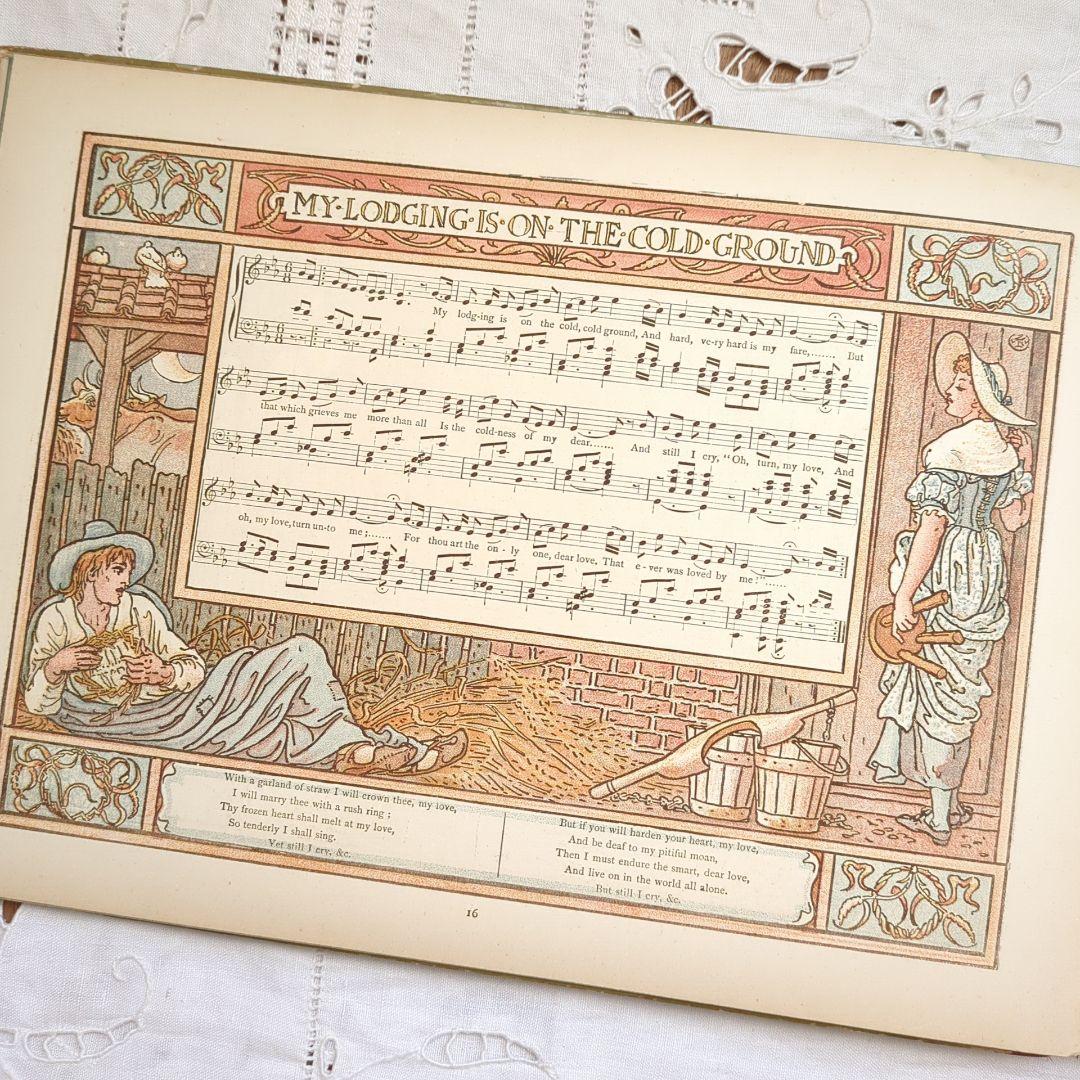 MY·LODGING·IS·ON·THE·COLD·GROUND
My lodg-ing is on the cold, cold ground, And hard, ve-ry hard is my fare,....... But
that which grieves me more than all Is the cold-ness of my dear....... And still I cry, "Oh, turn, my love, And
oh, my love, turn un-to me;....... For thou art the on - ly one, dear love, That e - ver was loved by me?"......
With a garland of straw I will crown thee, my love,
I will marry thee with a rush ring;
Thy frozen heart shall melt at my love,
So tenderly I shall sing.
Yet still I cry, &c.
But if you will harden your heart, my love,
And be deaf to my pitiful moan,
Then I must endure the smart, dear love,
And live on in the world all alone.
But still I cry, &c.
16